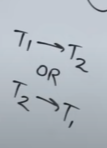 T₁ → T₂
OR
T₂ → T₁